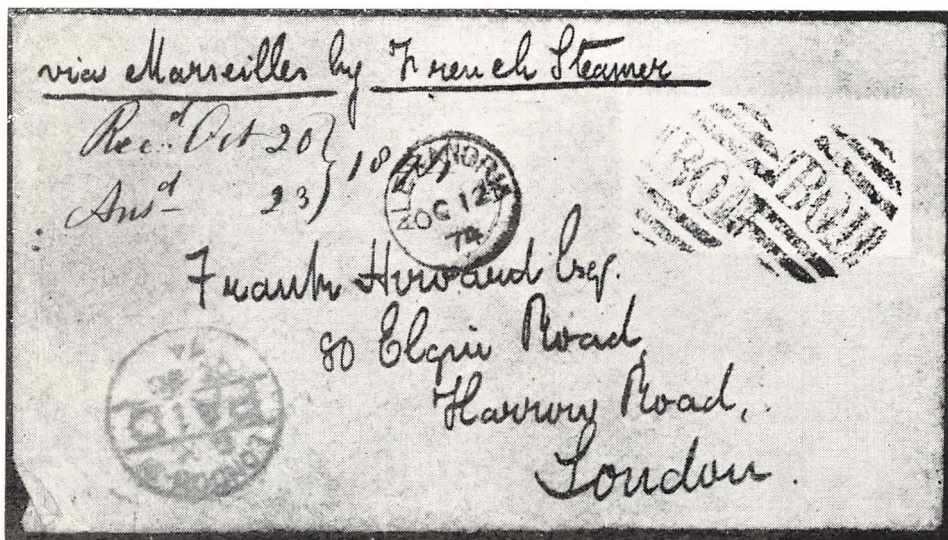 via Marseilles by French Steamer
Rec.d Oct 20 } 1874
Ansd 23
ALEXANDRIA
OC 12
74
B01 B01
Frank Howard Esq.
80 Elgin Road,
Harrow Road,
London.
LONDON
PAID
74